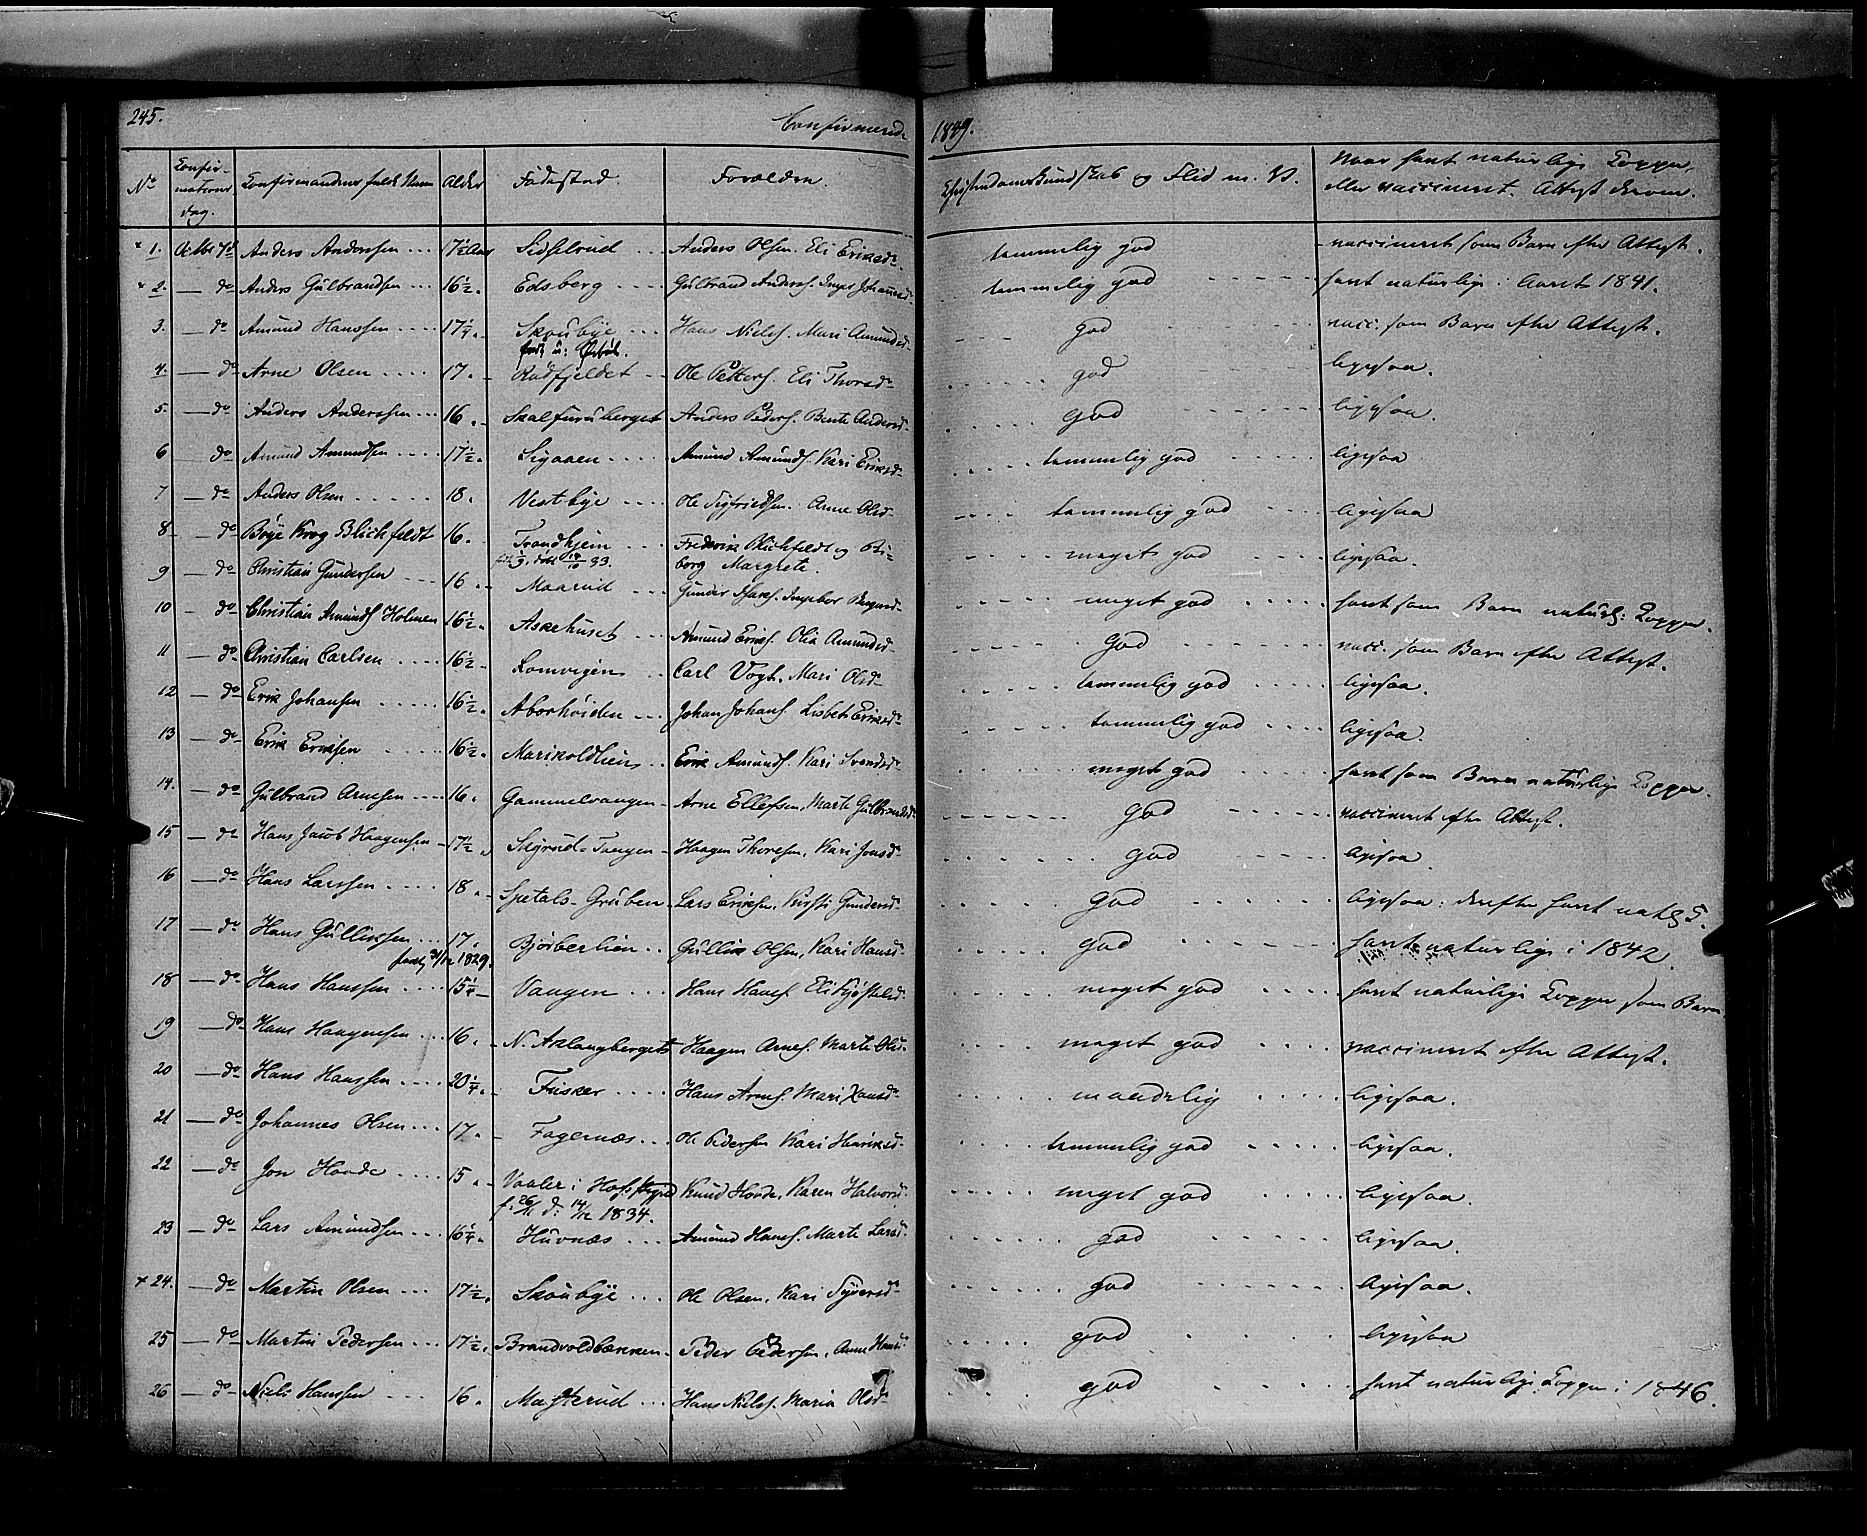 245. Confirmerede 1849.
No Confirmations dag. Confirmandens fulde Navn Alder Fødested Forældre Christendoms Kundskab og Flid m. V. Naar havt naturlige Kopper, eller vaccineret. Attest derom.
1. Octbr 7d Anders Andersen 17½ Aar Sidselrud Anders Olsen. Eli Eriksdr temmelig god vaccineret som Barn efter Attest.
2. do Anders Gulbrandsen 16½. Edsberg Gulbrand Anders. Inger Johannesd temmelig god havt naturlige i Aaret 1841.
3. do Amund Hanssen 17¼. Skoubye Hans Niels. Mari Amundsd god vacc. som Barn efter Attest.
4. do Arne Olsen 17. Rudfjeldet Ole Petters. Eli Thorsd god ligesaa.
5. do Anders Anderssen 16. Skalfuruberget Anders Peders. Bente Andersd god ligesaa.
6 do Amund Amundsen 17½. Sigaaen Amund Amunds. Kari Eriksd temmelig god ligesaa
7 do Anders Olsen 18. Vestbye Ole Sigfriedsen. Anne Olsd temmelig god ligesaa
8 do Böye Krog Blichfeldt 16. Trondhjem Frederik Blichfeldt og Birgitte Margrete. meget god ligesaa.
9 do Christian Gundersen 16. Maarud Gunder Isaks. Ingebor meget god havt som Barn naturl: Kopper.
10 do Christian Amunds Holmen 16½. Askehuset Amund Eriks. Olia Amundsd god vacc. som Barn efter Attest.
11 do Christian Carlsen 16½ Romvigen Carl Vogt. Mari Olsd temmelig god ligesaa.
12 do Erik Johansen 16½. Aborhöiden Johan Johans. Lisbet Eriksd temmelig god ligesaa.
13 do Erik Eriksen 16½. Marikoldlien Erik Amunds. Kari Svendsd meget god havt som Barn naturlige Kopper.
14. do Gulbrand Arnesen 16. Gammelvangen Arne Ellefsen, Marte Gulbrandsd god vaccineret efter Attest.
15 do Hans Jacob Haagensen 17½ Skyrud-Tangen Haagen Thoresen, Kari Jonsd god ligesaa
16 do Hans Larssen 18. Spetals-Gruben Lars Eriksen, Kirsti Gundersd god ligesaa. derefter havt
17 do Hans Gullikssen 17. Bjørberlien Gullik Olsen, Kari Hansd god havt naturlige i 1842
18 do Hans Hanssen født 21/12 1829. 15¼ Vangen Hans Hans. Eli meget god havt naturlige Kopper som Barn
19 do Hans Haagensen 16. N. Aklangberget Haagen Arnes. Marte Olsd. meget god vaccineret efter Attest.
20 do Hans Hanssen 20¼. Frisker Hans Arnes. Mari Hansd maadelig ligesaa.
21 do Johannes Olsen 17. Fagernæs Ole Pedersen Kari Henriksd temmelig god ligesaa.
22 do Jon Hovde 15. Vaaler i Hofs Knud Hovde, Karen Halvorsd. meget god ligesaa.
f: 26/11 d: 14/12 1834.
23 do Lars Amundsen 16¼. Huvnæs Amund Hans. Marte Larsd. god ligesaa.
24. do Martin Olsen 17½. Skoubye Ole Olsen, Kari Syversd god ligesaa.
25 do Martin Pedersen 17½. Brandvoldbækken Peder Pedersen, Anne Hansd god ligesaa
26 do Niels Hanssen 16. Masterud Hans Niels. Maria Olsd god havt naturlige Kopper i 1846.